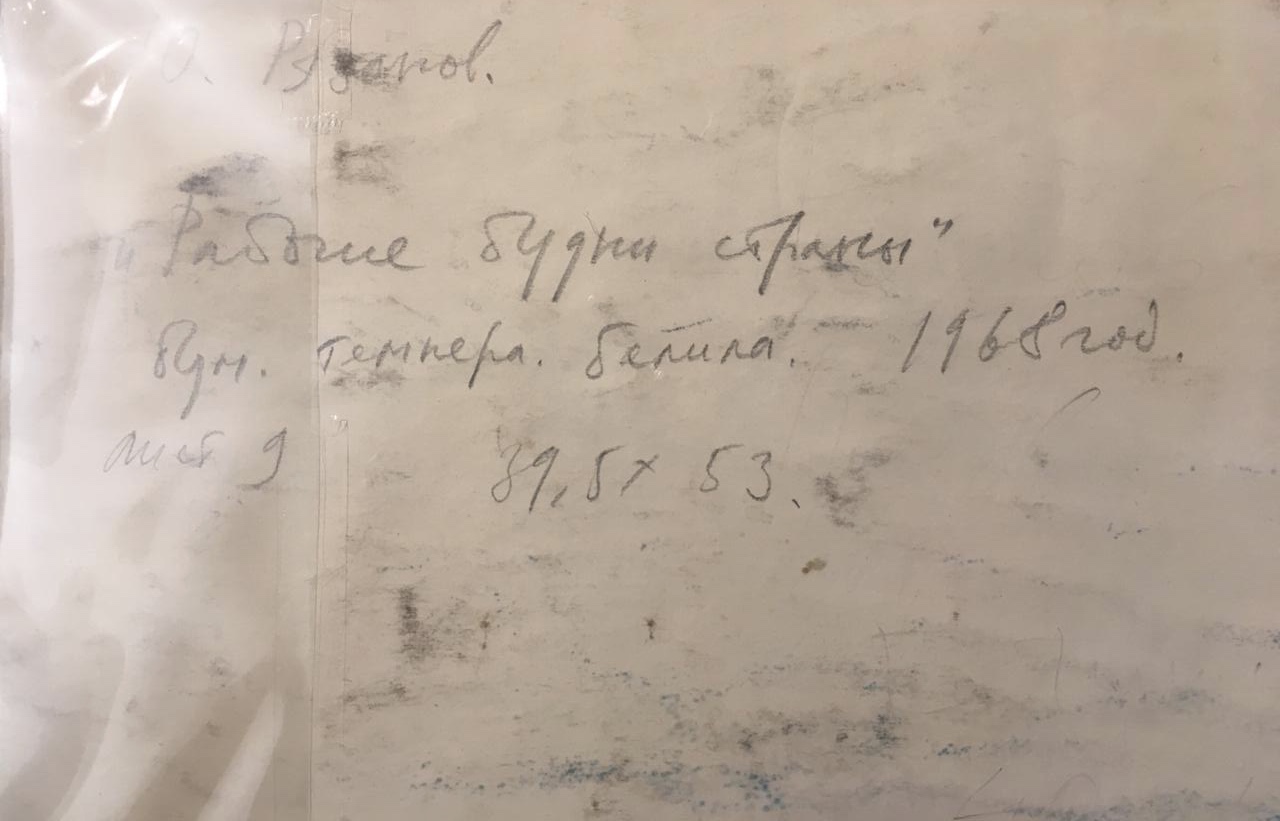 "Рабочие будни страны"
бум. темпера. белила. 1968 год.
лист 9 39,5 х 53.